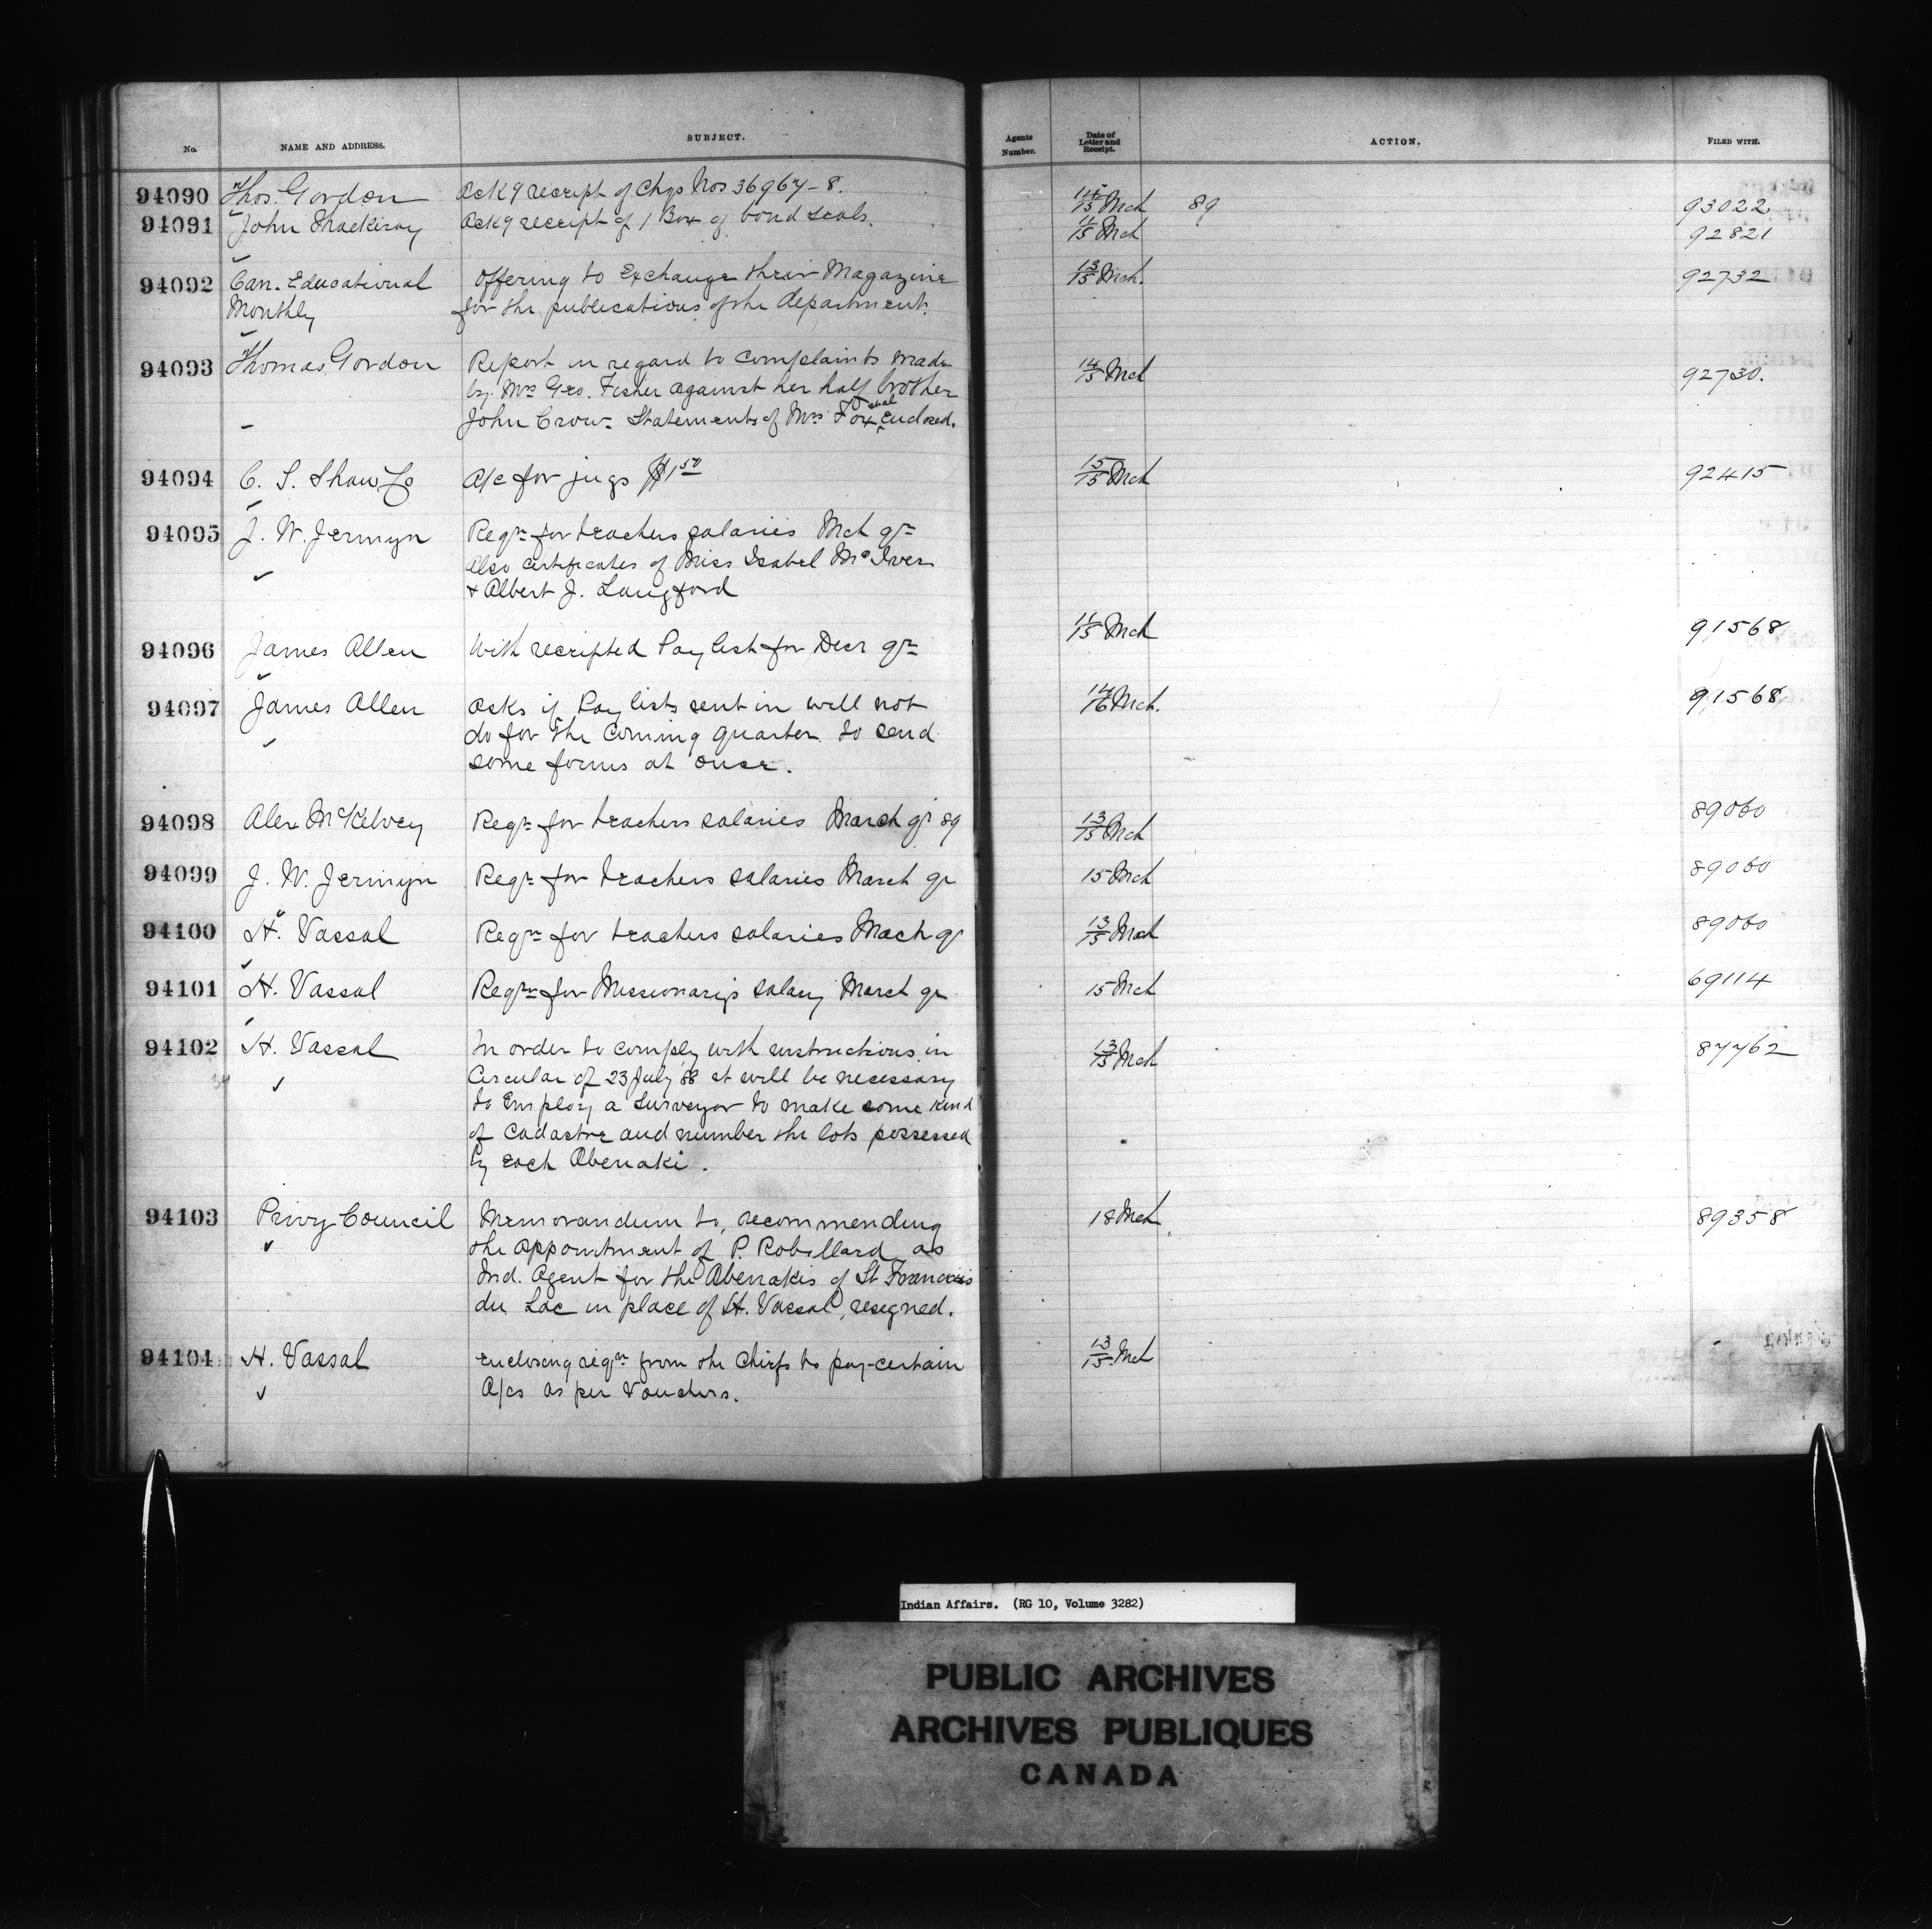 No. NAME AND ADDRESS. SUBJECT. Agents Number. Date of Letter and Receipt. ACTION. FILED WITH.
94090 Thos. Gordon Ackg receipt of Chqs Nos 36967-8. 14/15 Mch 89 93022
94091 John Thackeray Ackg receipt of 1 Box of bond seals. 11/15 Mch 92821
94092 Can. Educational Offering to Exchange their Magazine 13/15 Mch. 92732
Monthly for the publications of the department.
94093 Thomas Gordon Report in regard to complaints made 14/15 Mch 92730.
by Mrs Geo. Fisher against her half brother
John Crow - Statements of Mrs Fox enclosed.
94094 C. S. Shaw & Co A/c for jugs $1 50 15/15 Mch 92415
94095 J. W. Jermyn Reqn for teachers salaries Mch qr
also certificates of Miss Isabel McIver
+ Albert J. Langford
94096 James Allen With receipted Pay list for Decr qr 11/15 Mch 91568
94097 James Allen Asks if Pay lists sent in will not 14/16 Mch. 91568
do for the coming quarter. to send
some forms at once.
94098 Alex McKelvey Reqn for teachers salaries March qr 89 13/15 Mch 89060
94099 J. W. Jermyn Reqn for teachers salaries March qr 15 Mch 89060
94100 H. Vassal Reqn for teachers salaries Mach qr 13/15 Mch 89060
94101 H. Vassal Reqn for Missionary's salary March qr 15 Mch 69114
94102 H. Vassal In order to comply with instructions in 13/15 Mch 87762
Circular of 23 July '88 it will be necessary
to Employ a Surveyor to make some kind
of Cadastre and number the lots possessed
by each Abenaki.
94103 Privy Council Memorandum to, recommending 18 Mch 89358
the appointment of P. Robillard as
Ind. Agent for the Abenakis of St Francois
du Lac in place of H. Vassal, resigned.
94104 H. Vassal Enclosing reqn from the Chiefs to pay certain 13/15 Mch
A/cs as per Vouchers.
Indian Affairs. (RG 10, Volume 3282)
PUBLIC ARCHIVES
ARCHIVES PUBLIQUES
CANADA